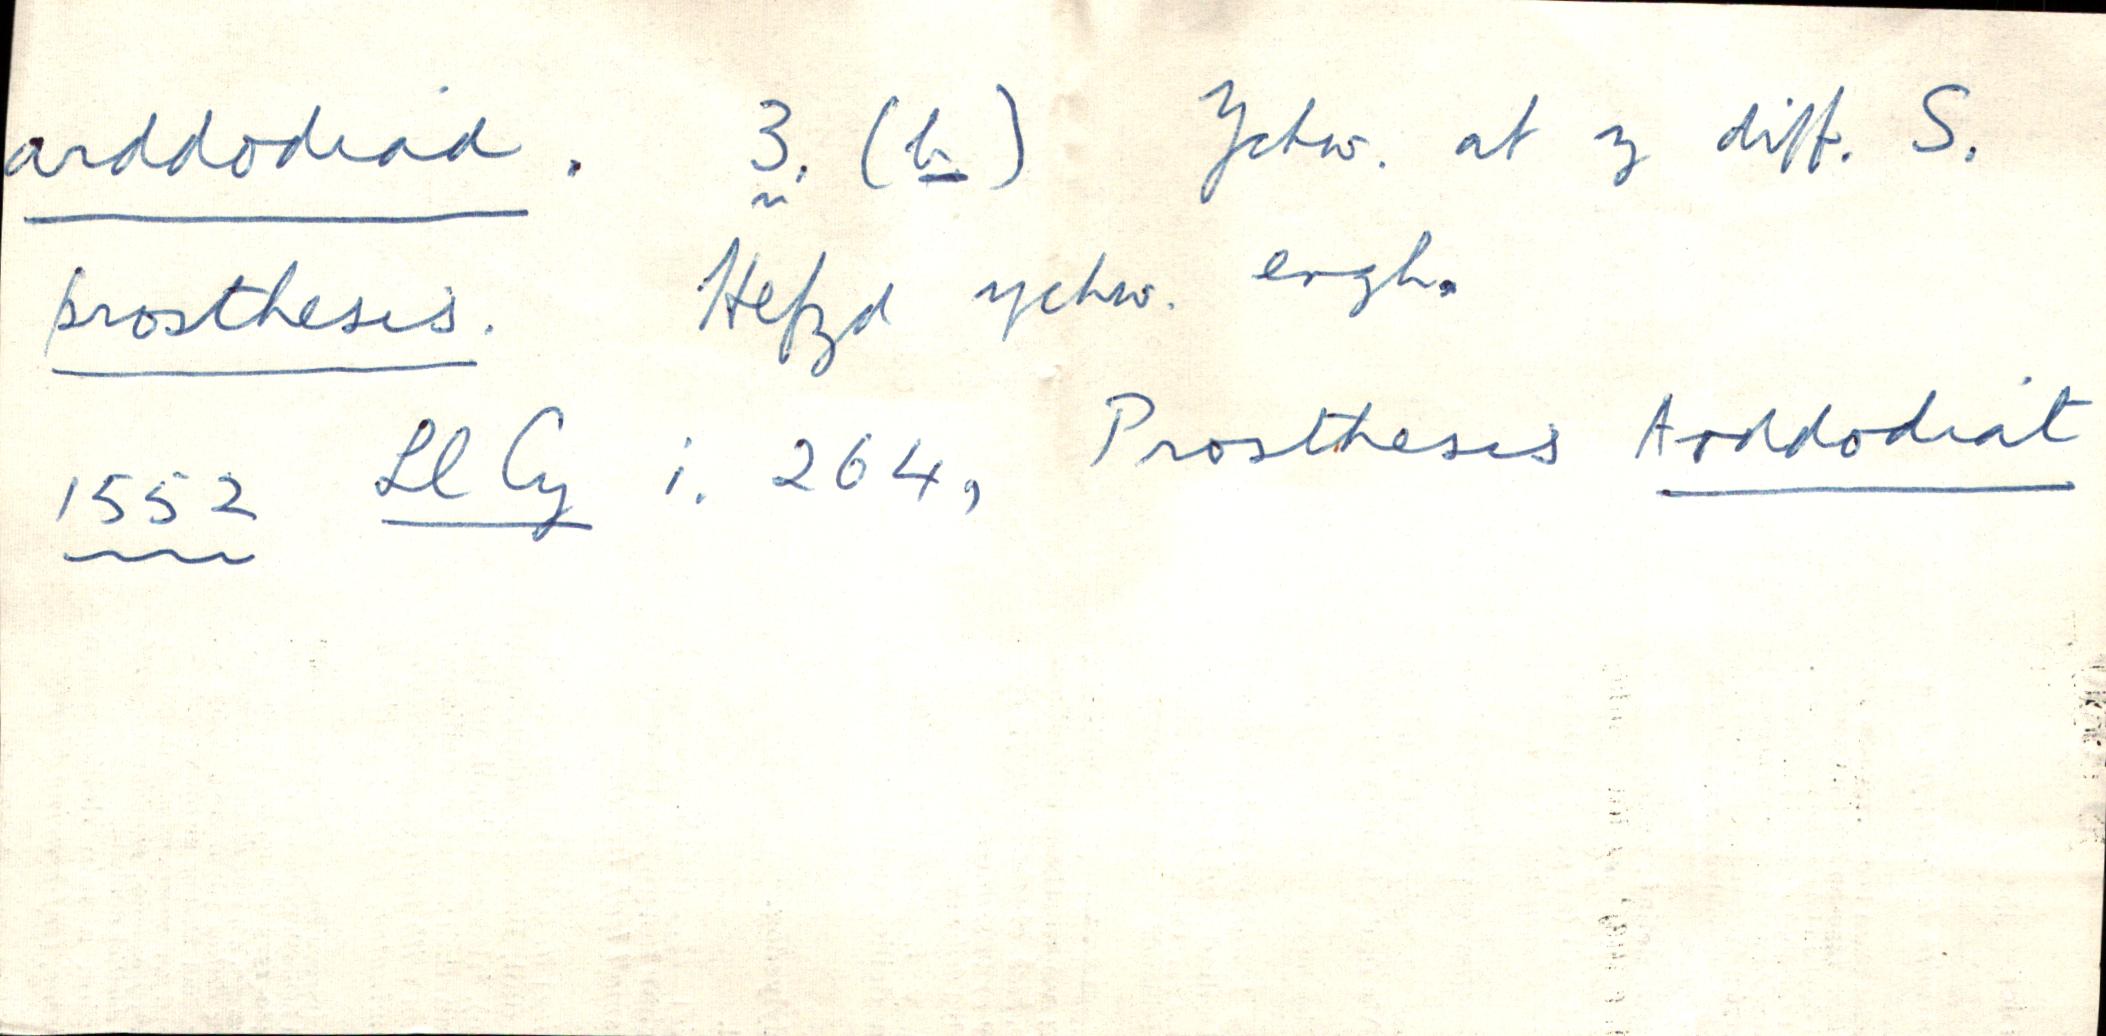 arddodiad. 3. (b.) Ychw. at y diff. S.
prosthesis. Hefyd ychw. engh.
1552 Ll Cy i. 264, Prosthesis Arddodiat